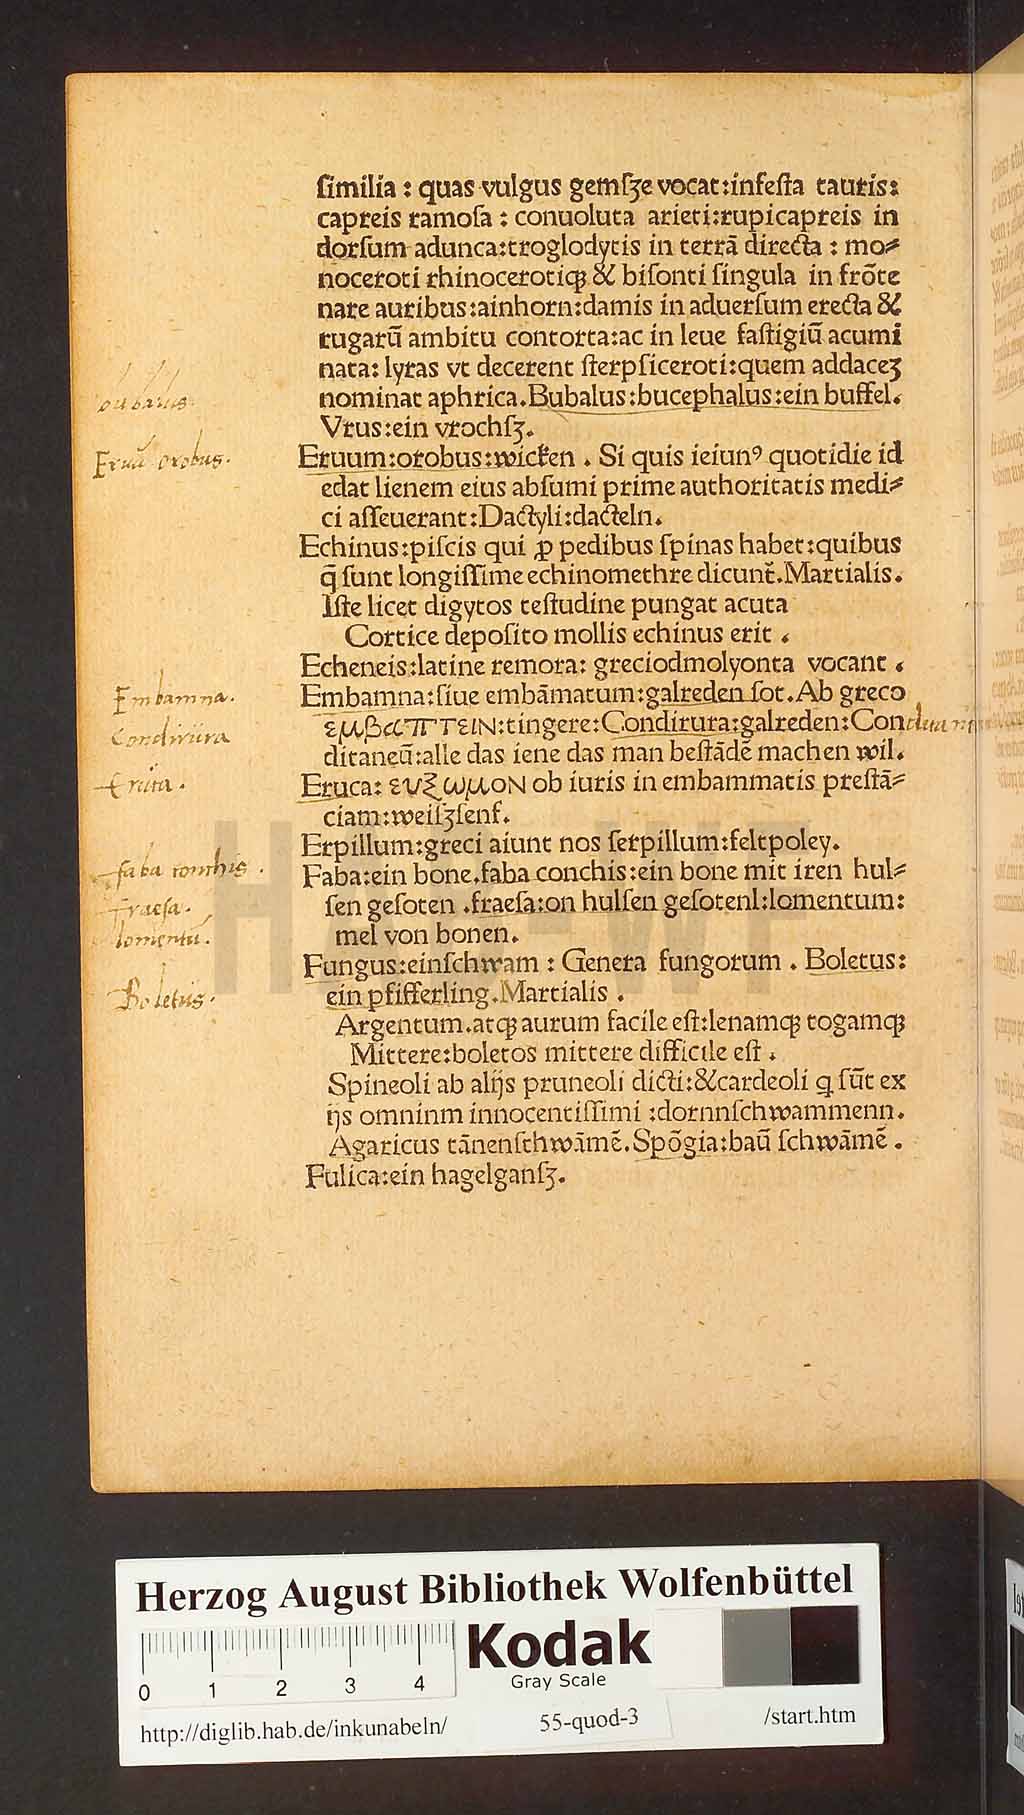 ſimilia : quas vulgus gemſʒe vocat:infeſta tauris:
capreis ramoſa : conuoluta arieti:rupicapreis in
dorſum adunca:troglodytis in terrā directa : mo⸗
noceroti rhinocerotiqꝫ & biſonti ſingula in frōte
nare auribus:ainhorn:damis in aduerſum erecta &
rugarū ambitu contorta:ac in leue faſtigiū acumi
nata: lyras vt decerent ſterpſiceroti:quem addaceʒ
bubalus.
nominat aphrica.Bubalus:bucephalus:ein buffel.
Vrus:ein vrochſʒ.
Eruū orobus.
Eruum:orobus:wicken . Si quis ieiunꝰ quotidie id
edat lienem eius abſumi prime authoritatis medi⸗
ci aſſeuerant:Dactyli:dacteln.
Echinus:piſcis qui ꝓ pedibus ſpinas habet:quibus
q̄ ſunt longiſſime echinomethre dicunt̄.Martialis.
Iſte licet digytos teſtudine pungat acuta
Cortice depoſito mollis echinus erit .
Echeneis:latine remora: greciodmolyonta vocant .
Embamna.
Embamna:ſiue embāmatum:galreden ſot.Ab greco
Condirura
εμβαπτειΝ:tingere:Condirura:galreden:Con
ditaneū:alle das iene das man beſtādē machen wil.
Eruca.
Eruca: ευξωμοΝ ob iuris in embammatis preſtā⸗
ciam:weiſʒſenf.
Erpillum:greci aiunt nos ſerpillum:feltpoley.
faba conchis .
Faba:ein bone.faba conchis:ein bone mit iren hul⸗
fraesa.
ſen geſoten .fraeſa:on hulſen geſotenl:lomentum:
lomentū.
mel von bonen.
Fungus:einſchwam : Genera fungorum . Boletus:
Boletus.
ein pfifferling.Martialis .
Argentum.atqꝫ aurum facile eſt:lenamqꝫ togamqꝫ
Mittere:boletos mittere difficile eſt .
Spineoli ab alijs pruneoli dicti:&cardeoli q ſūt ex
ijs omninm innocentiſſimi :dornnſchwammenn.
Agaricus tānenſchwāmē.Spōgia:baū ſchwāmē .
Fulica:ein hagelganſʒ.
HAB-WF
Herzog August Bibliothek Wolfenbüttel
0 1 2 3 4
Kodak
Gray Scale
http://diglib.hab.de/inkunabeln/ 55-quod-3 /start.htm